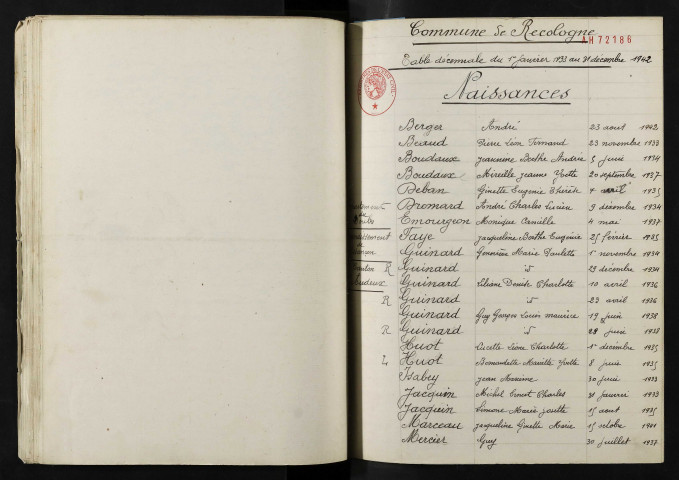 Commune de Recologne
AH72186
Table décennale du 1er janvier 1933 au 31 décembre 1942
Naissances
Berger André 23 aout 1942
Beaud Pierre Léon Fernand 23 novembre 1933
Boudaux Jeannine Berthe Andrée 5 juin 1934
Boudaux Mireille Jeanne Yvette 20 septembre 1937
Beban Ginette Eugénie Thérèse 7 avril 1935
Bromard André Charles Lucien 9 décembre 1934
Emourgeon Monique Camille 4 mai 1937
Faye Jacqueline Berthe Eugénie 25 février 1935
Guinard Geneviève Marie Paulette 1er novembre 1934
R Guinard id 29 décembre 1934
Guinard Liliane Denise Charlotte 10 avril 1936
R Guinard id 23 avril 1936
Guinard Guy Georges Louis Maurice 19 juin 1938
R Guinard id 28 juin 1938
Huot Lucette Léone Charlotte 1er décembre 1935
Huot Bernadette Mariette Yvette 8 juin 1935
Isabey Jean Maxime 30 juin 1933
Jacquin Michel Ernest Charles 31 janvier 1933
Jacquin Simone Marie Josette 15 aout 1935
Marceau Jacqueline Ginette Marie 15 octobre 1941
Mercier Guy 30 juillet 1937